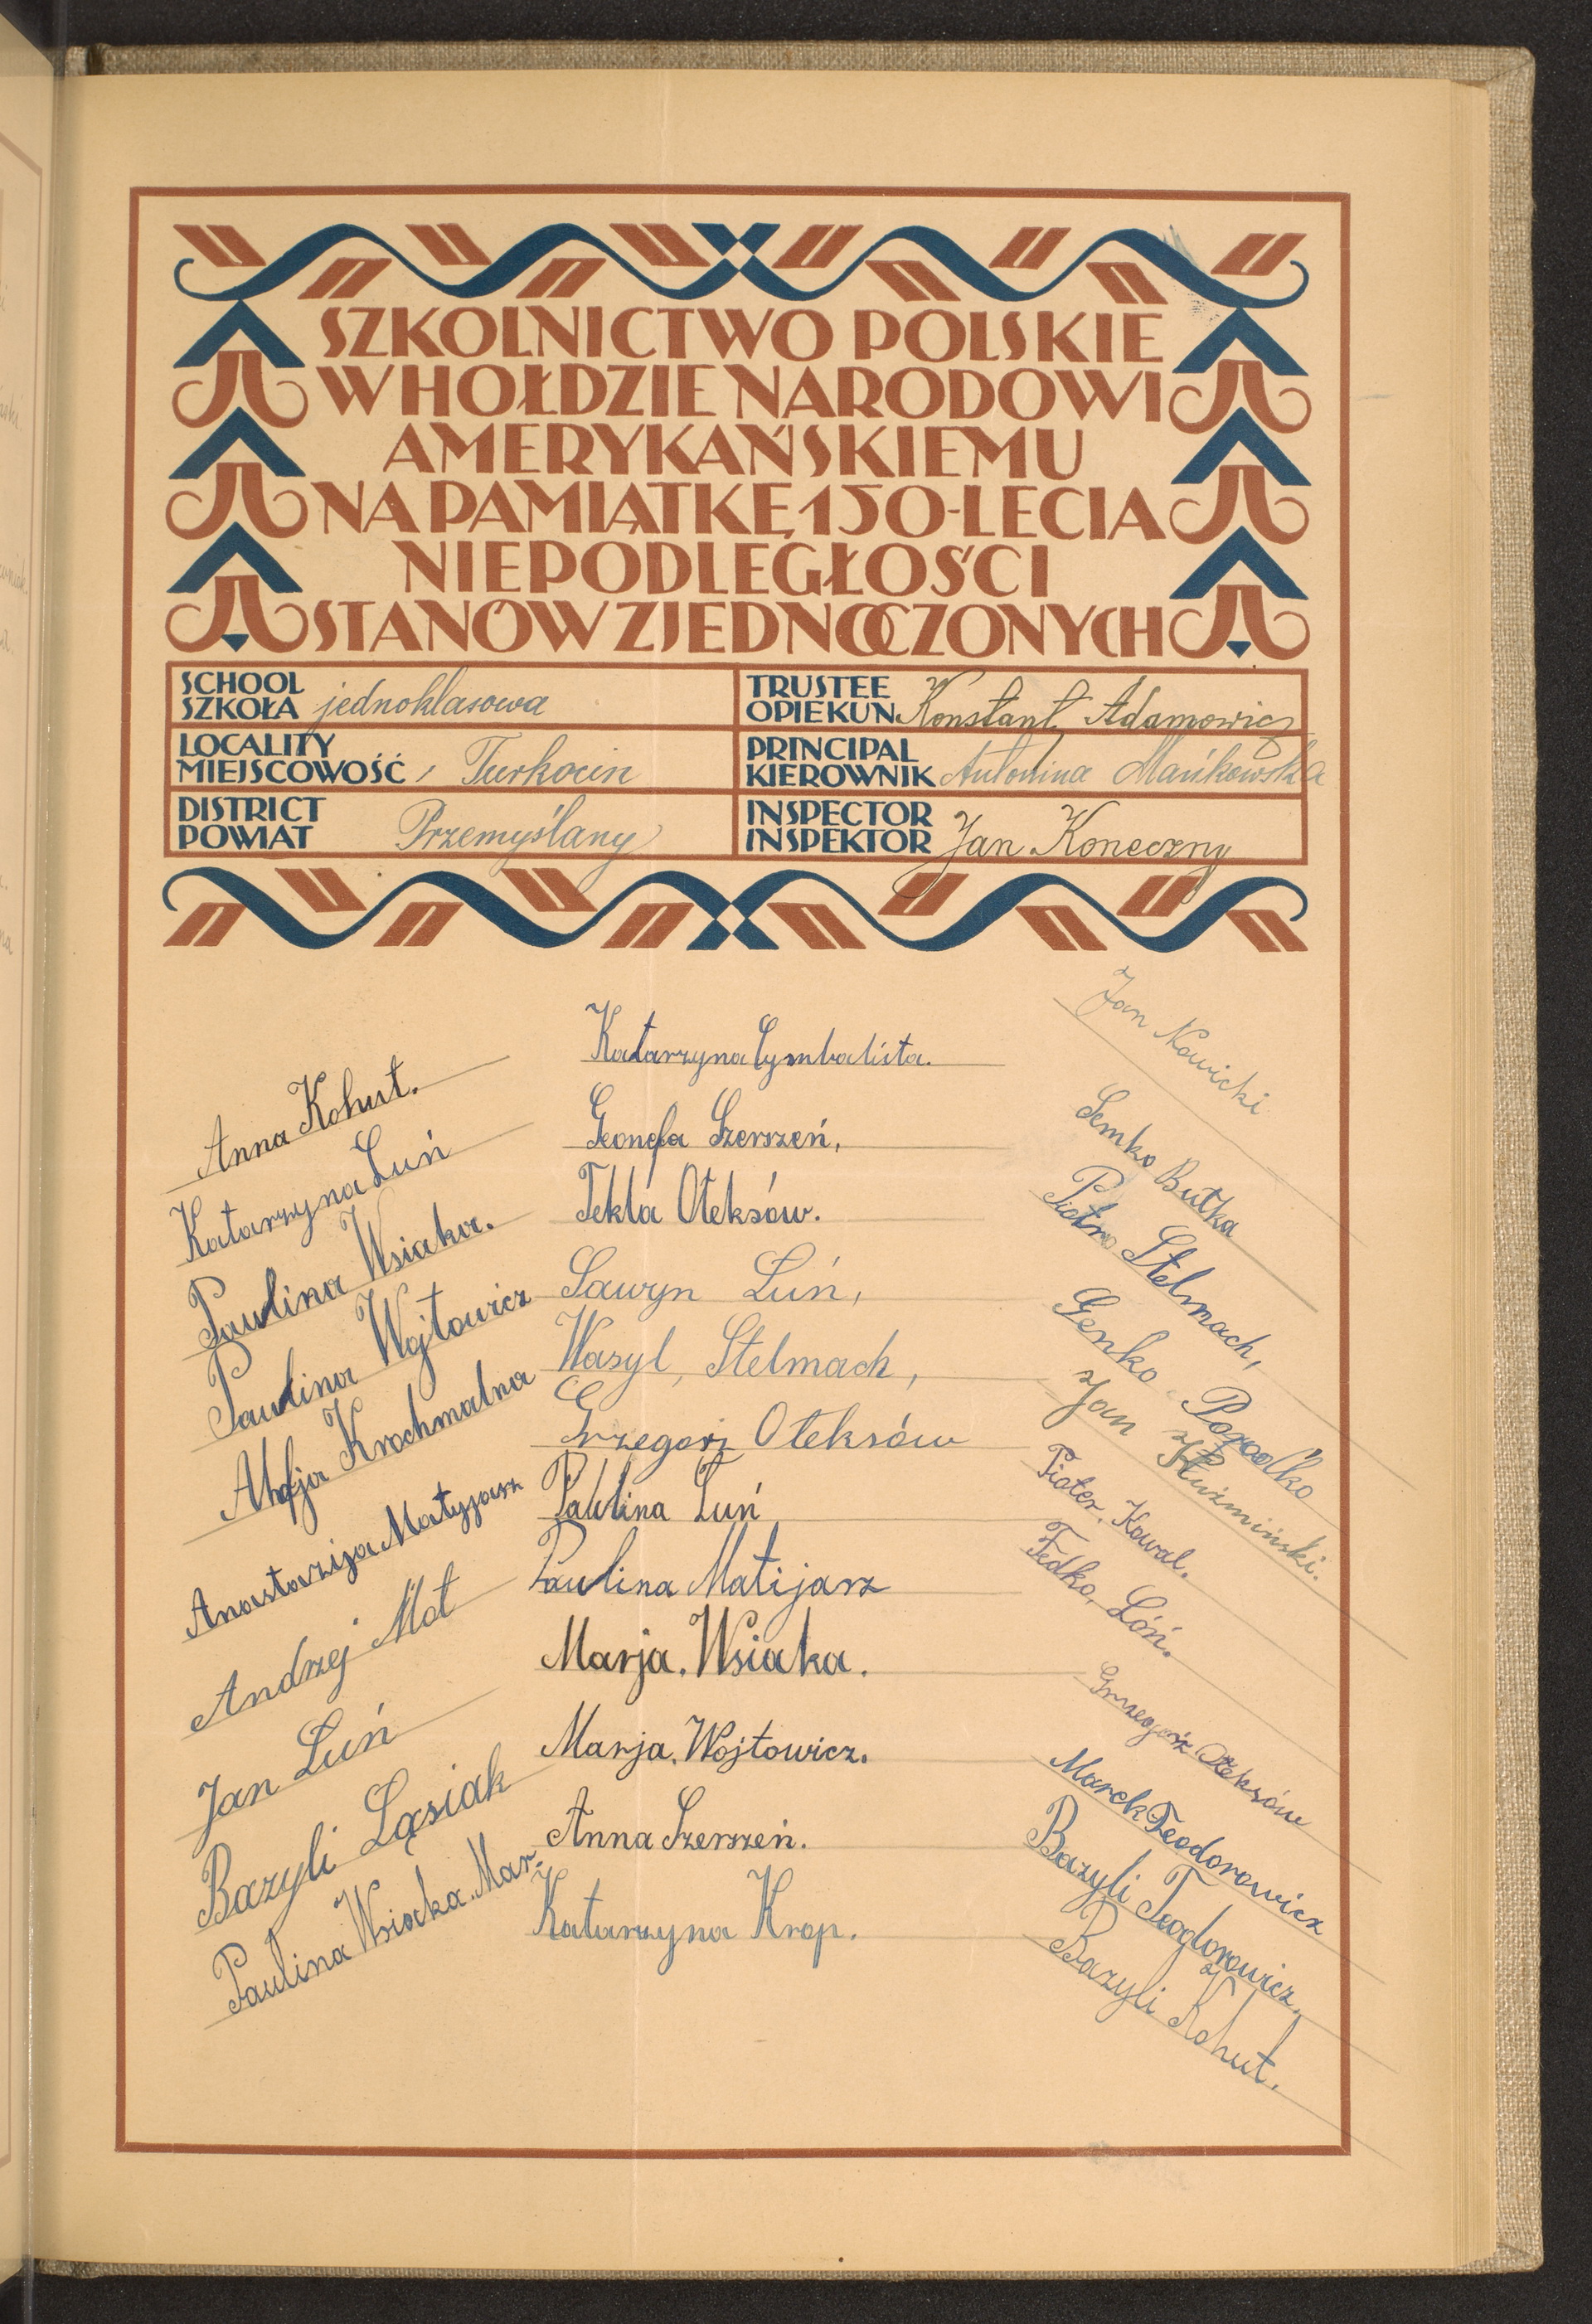 SZKOLNICTWO POLSKIE
W HOŁDZIE NARODOWI
AMERYKAŃSKIEMU
NA PAMIĄTKĘ 150-LECIA
NIEPODLEGŁOŚCI
STANÓW ZJEDNOCZONYCH
SCHOOL
SZKOŁA jednoklasowa
LOCALITY
MIEJSCOWOŚĆ Turkocin
DISTRICT
POWIAT Przemyślany
TRUSTEE
OPIEKUN Konstant. Adamowicz
PRINCIPAL
KIEROWNIK Antonina Mańkowska
INSPECTOR
INSPEKTOR Jan Koneczny
Anna Kohut.
Katarzyna Łuń
Paulina Wsiaka.
Paulina Wojtowicz
Krochmalna
Anastazija Matyjasz
Andrzej Mot
Jan Łuń
Bazyli Ląsiak
Paulina Wsiaka. Mar.
Katarzyna Cymbalista.
Genefa Szerszeń,
Tekla Oleksów.
Sawyn Łuń,
Wasyl, Stelmach,
Grzegorz Oleksów
Paulina Łuń
Paulina Matijasz
Marja. Wsiaka.
Marja. Wojtowicz.
Anna Szerszeń.
Katarzyna Krop.
Jan Nowicki
Semko Butka
Pietro Stelmach,
Genko
Jan Kuźmiński.
Pioter. Kowal.
Fedko, Łóń.
Grzegorz Oleksów
Marek Teodorowicz
Bazyli Teodorowicz.
Bazyli Kohut.